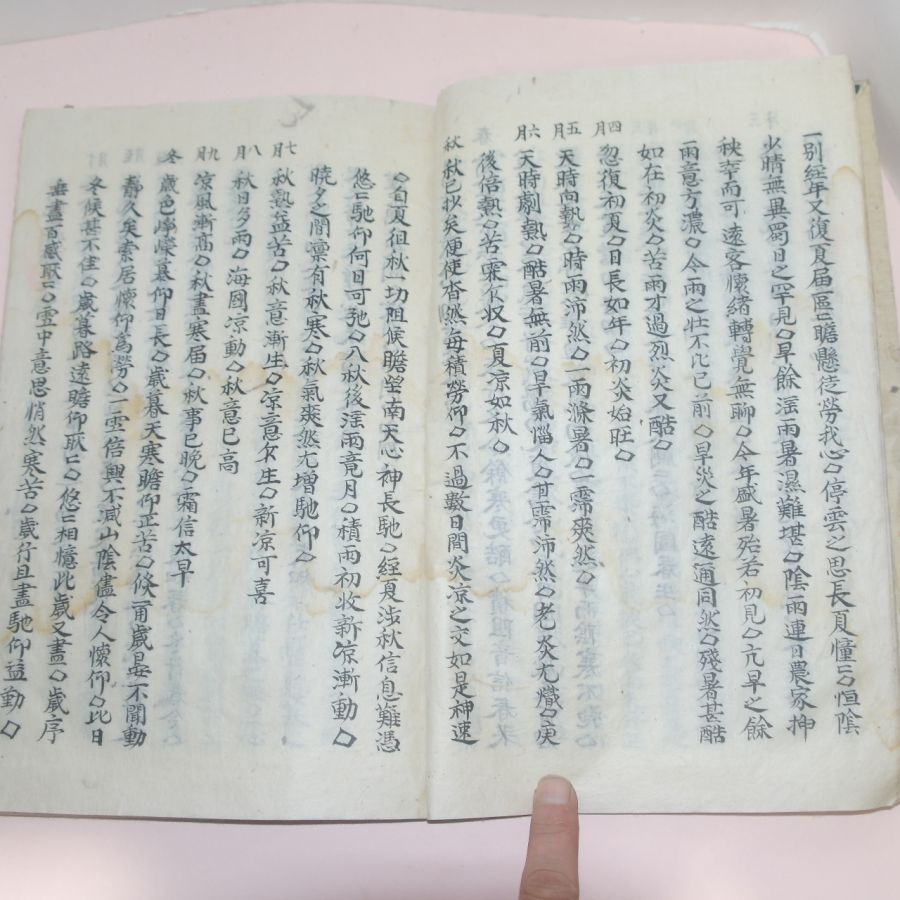 一別經年又復夏届區〻瞻懸徒勞我心◇停雲之思長夏憧〻◇恒陰
少晴無異蜀日之罕見◇旱餘淫雨暑濕難堪◇陰雨連日農家挿
秧幸而可遠客懷緖轉覺無聊◇今年盛暑殆若初見◇亢旱之餘
雨意方濃◇今雨之壯不比已前◇旱災之酷遠通同然◇殘暑甚酷
如在初炎◇苦雨才過烈炎又酷◇
四月 忽復初夏◇日長如年◇初炎始旺◇
五月 天時向熱◇時雨沛然◇一雨滌暑◇一霈爽然◇
六月 天時劇熱◇酷暑無前◇旱氣惱人◇甘霈沛然◇老炎尤熾◇庚
後倍熱◇苦霖不收◇夏凉如秋◇
秋 秋已抄矣便使杳然每積勞仰◇不過數日間炎凉之交如是神速
◇自夏徂秋一切阻候瞻望南天心神長馳◇經夏涉秋信息難憑
悠〻馳仰何日可弛◇入秋後淫雨竟月◇積雨初收新凉漸動◇
曉夕之間凛有秋寒◇秋氣爽然尤增馳仰◇
七月 秋熱益苦◇秋意漸生◇凉意乍生◇新凉可喜
八月 秋日多雨◇海國凉動◇秋意已高
九月 凉風漸高◇秋盡寒届◇秋事已晩◇霜信太早
冬 歲色崢嶸慕仰日長◇歲暮天寒瞻仰正苦◇倏爾歲晏不聞動
靜久矣索居懷仰爲勞◇一雪倍興不減山陰儘令人懷仰◇比日
冬候甚不佳◇歲暮路遠瞻仰耿〻◇悠〻相憶此歲又盡◇歲序
垂盡百感耿〻◇雪中意思悄然寒苦◇歲行且盡馳仰益勤◇